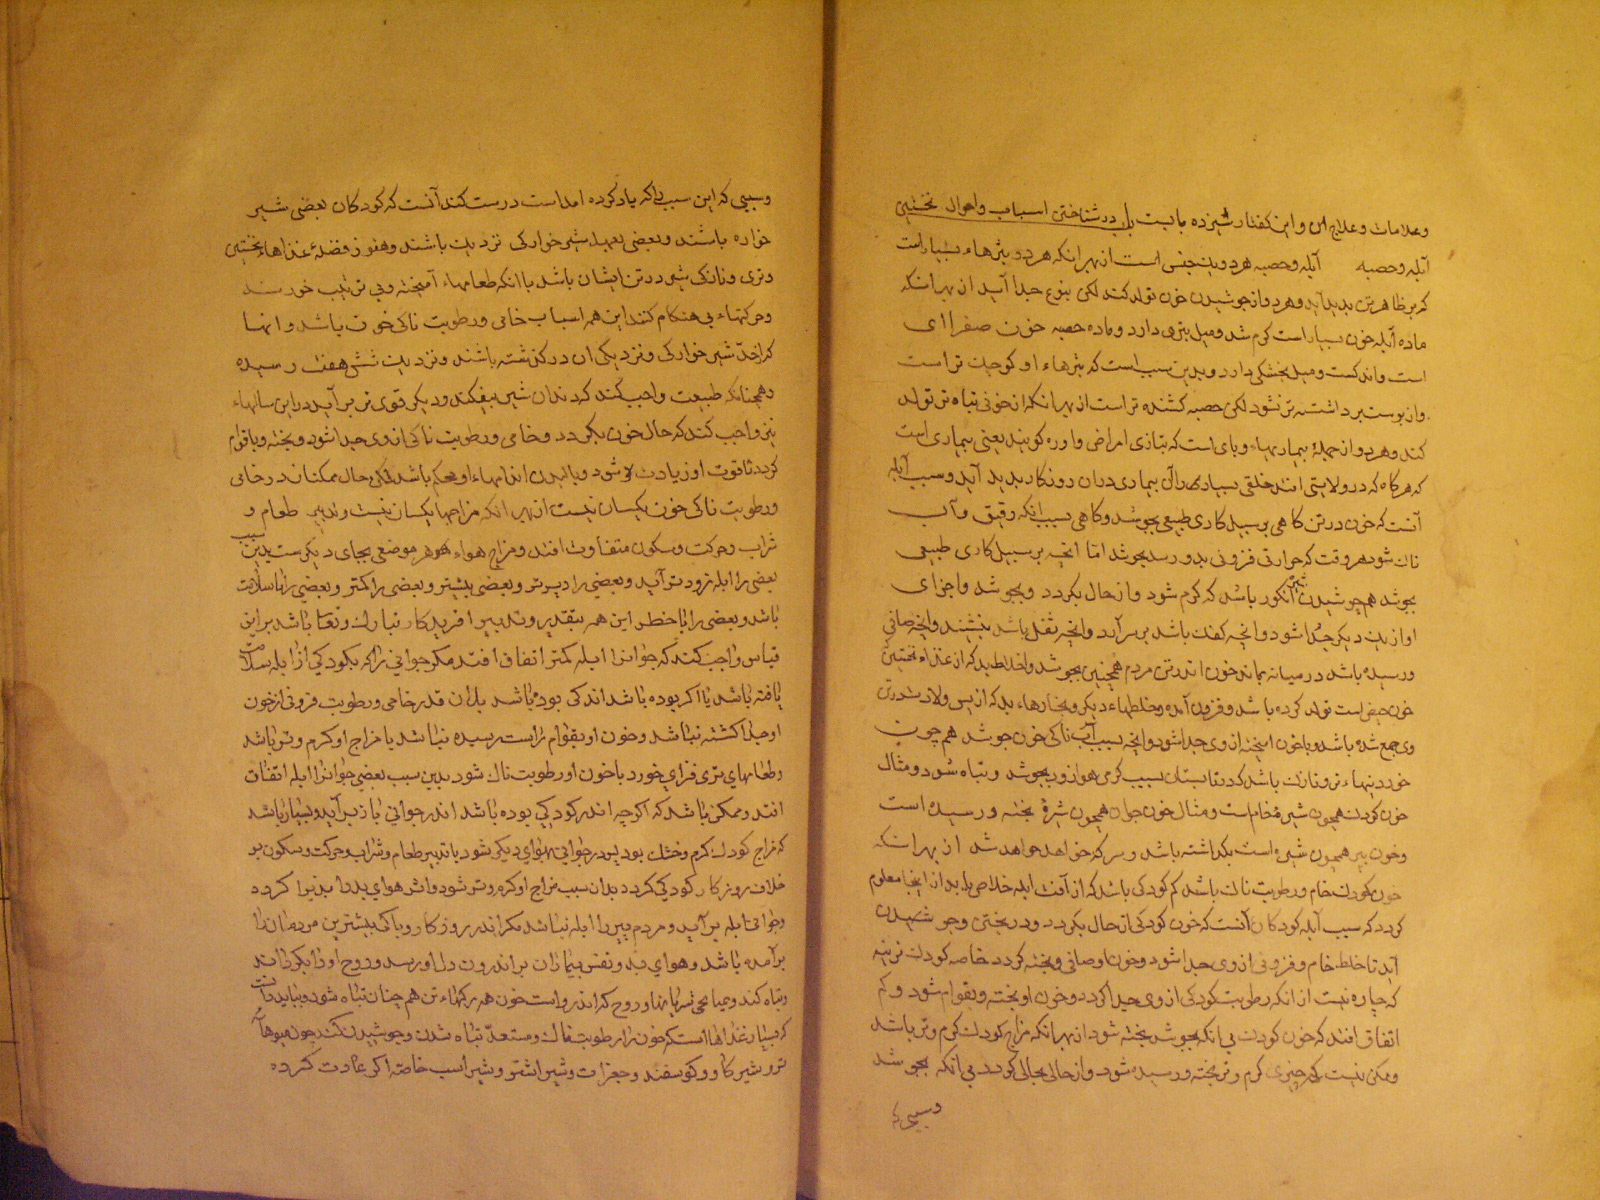 وعلامات وعلاج ان واین کفتار شیزده بابست باب در شناختن اسباب واحوال نخستین
آبله وحصبه آبله وحصبه هر دو یک جنس است از بهر انکه هر دو بثرهاء بسیار است
که بر ظاهر تن بدید آید وهر دو از جوشیدن خون تولد کند لکن بنوع جدا آید از بهر انکه
ماده آبله خون بسیار است کرم شد ومیل بتری دارد وماده حصبه خون صفراای
است واندکست ومیل بخشکی دارد وبدین سبب است که بثرهاء او کوچک تر است
واز پوست برداشته تر نشود لکن حصبه کشنده تر است از بهر انکه از خونی تباه تر تولد
کند وهر دو از جمله بیماریهاء وبای است که بتازی امراض وارده کویند یعنی بیماری است
که هر کاه که در ولایتی افتد خلقی بسیار را آن بیماری دران روزکار بدید آید وسبب آبله
آنست که خون در تن کاهی بر سبیل کاری طبیعی بجوشد وکاهی بسبب انکه رقیق وآب
ناک شود هر وقت که حرارتی فزونی بدو رسد بجوشد اما انچه بر سبیل کاری طبیعی
بجوشد هم چو شیره انکور باشد که کرم شود واز حال بکردد وبجوشد واجزای
او از یک دیکر جدا شود وانچه کفک باشد بر سر آید وانچه ثقل باشد بنشیند وانچه صافی
ورسیده باشد در میانه بماند خون اندر تن مردم همچنین بجوشد واخلاط بد که از غذاء نخستین
خون حیض است تولد کرده باشد وفزون آمده وخلطهاء دیکر وبخارهاء بد که از پس ولادت در تن
وی جمع شده باشد وبا خون امیخته از وی جدا شود وانچه بسبب آب ناکی خون جوشد هم چون
خوردنیهاء تر ونازک باشد که در تابستان بسبب کرمی هوا زود بجوشد وتباه شود ومثال
خون کودک همچون شیره خام است ومثال خون جوان همچون شیرهٔ پخته ورسیده است
وخون پیر همچون شیره است بکذاشته باشد وسرکه خواهد خواهد شد از بهر انکه
خون کودک خام ورطوبت ناک باشد کم کودکی باشد که از آفت ابله خلاص یابد از اینجا معلوم
کردد که سبب آبله کودکان آنست که خون کودکی از حال بکردد ودر پختن وجوشیدن
آید تا خلط خام وفزونی از وی جدا شود وخون او صافی وپخته کردد خاصه کودک نرینه
که چاره نیست از انکه رطوبت کودکی از وی جدا کردد وخون او پخته وبقوام شود وکم
اتفاق افتد که خون کودک بی انکه بجوشد پخته شود از بهر انکه مزاج کودک کرم وتر باشد
وممکن نیست که چیزی کرم وتر پخته ورسیده شود واز حالی بحالی کردد بی انکه بجوشد
وسببی که
وسببی که این سبب را که یاد کرده امد است درست کند آنست که کودکان بعضی شیر
خواره باشند وبعضی بعهد شیر خوارکی نزدیک باشند وهنوز فضلهٔ غذاهاء نخستین
وتری ونازکی شیر در تن ایشان باشد با انکه طعامهاء آمیخته وبی ترتیب خورند
وحرکتهاء بی هنکام کنند این همه اسباب خامی ورطوبت ناکی خون باشد وانها
که از حد شیر خوارکی ونزدیکی ان درکذشته باشند ونزدیک شش هفت رسیده
وهمچنانکه طبیعت واجب کند که دندان شیر بیفکند ودیکر قوی تر بر آید در این سالهاء
نیز واجب کند که حال خون بکردد وخامی ورطوبت ناکی از وی جدا شود وپخته وباقوام
کردد تا قوت او زیادت شود وبالیدن اندامهاء او محکم باشد لکن حال همکنان در خامی
ورطوبت ناکی خون یکسان نیست از بهر انکه مزاجها یکسان نیست وتدبیر طعام و
شراب وحرکت وسکون متفاوت افتد ومزاج هواء هر موضعی بجای دیکرست بدین سبب
بعضی را ابله زودتر آید وبعضی را دیرتر وبعضی را بیشتر وبعضی را کمتر وبعضی را با سلامت
باشد وبعضی را با خطر این همه بتقدیر وتدبیر افریدکار تبارک وتعالی باشد بر این
قیاس واجب کند که جوانرا ابله کمتر اتفاق افتد مکر جوانی را که بکودکی از ابله سلامت
یافته باشد یا اکر بوده باشد اندکی بوده باشد بدان قدر خامی ورطوبت فزونی از خون
او جدا کشته نباشد وخون او بقوام راست رسیده نباشد یا مزاج او کرم وتر باشد
وطعامهای تری فزای خورد یا خون او رطوبت ناک شود بدین سبب بعضی جوانرا ابله اتفاق
افتد وممکن باشد که اکر چه اندر کودکی بوده باشد اندر جوانی باز بر آید وبسیار باشد
که مزاج کودک کرم وخشک بود پس در جوانی بهوای دیکر شود یا تدبیر طعام وشراب وحرکت وسکون بر
خلاف روزکار کودکی کردد بدان سبب مزاج او کرم وتر شود واثر هوای بد را پذیرا کردد
وجوانی ابله بر آید ومردم پیر را ابله نباشد مکر اندر روزکار وبا که بیشترین مردمان را
بر آمده باشد وهوای بد ونفس بیماران بر اندرون دل او رسد وروح او را بکرداند
وتباه کند وبمیانجی شریانها وروح که اندر واست خون همه رکهاء تن هم چنان تباه شود وبباید دانست
که بسیار غذاها است که خون را رطوبت ناک ومستعد تباه شدن وجوشیدن کند چون میوهاء
تر وشیر کاو وکوسفند وجغرات وشیر اشتر وشیر اسب خاصه اکر عادت کرده